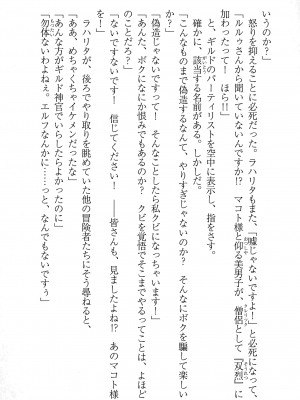 いうのか？」
怒りを抑えることに必死だった。ラハリタもまた、「嘘じゃないですよー！」と必死になって、
「ルルゥさんから聞いてないんですか!?　マコト様と仰る美男子が、僧侶として『双烈』に
加わったって！　ほら!!」
と、ギルドのパーティリストを空中に表示し、指をさす。
確かに、該当する名前がある。しかしだ。
「こんなものまで偽造するなんて、やりすぎじゃないのか？　そんなにボクを騙して楽しい
か？」
「偽造じゃないですって！　そんなことしたら私クビになっちゃいます！」
「あんた、ボクになにか恨みでもあるのか？　クビを覚悟でそこまでやるってことは、よほど
のことだろ？」
「ないですないです！　信じてください！　――皆さんも、見ましたよね!?　あのマコト様
を！」
ラハリタが、後ろでやり取りを眺めていた他の冒険者たちにそう尋ねると、
「ああ、めちゃくちゃイケメンだったな」
「あんな方がギルド神官でいらしたらよかったのに」
「勿体ないわよねぇ。エルフなんかに……っと、なんでもないですぅ」